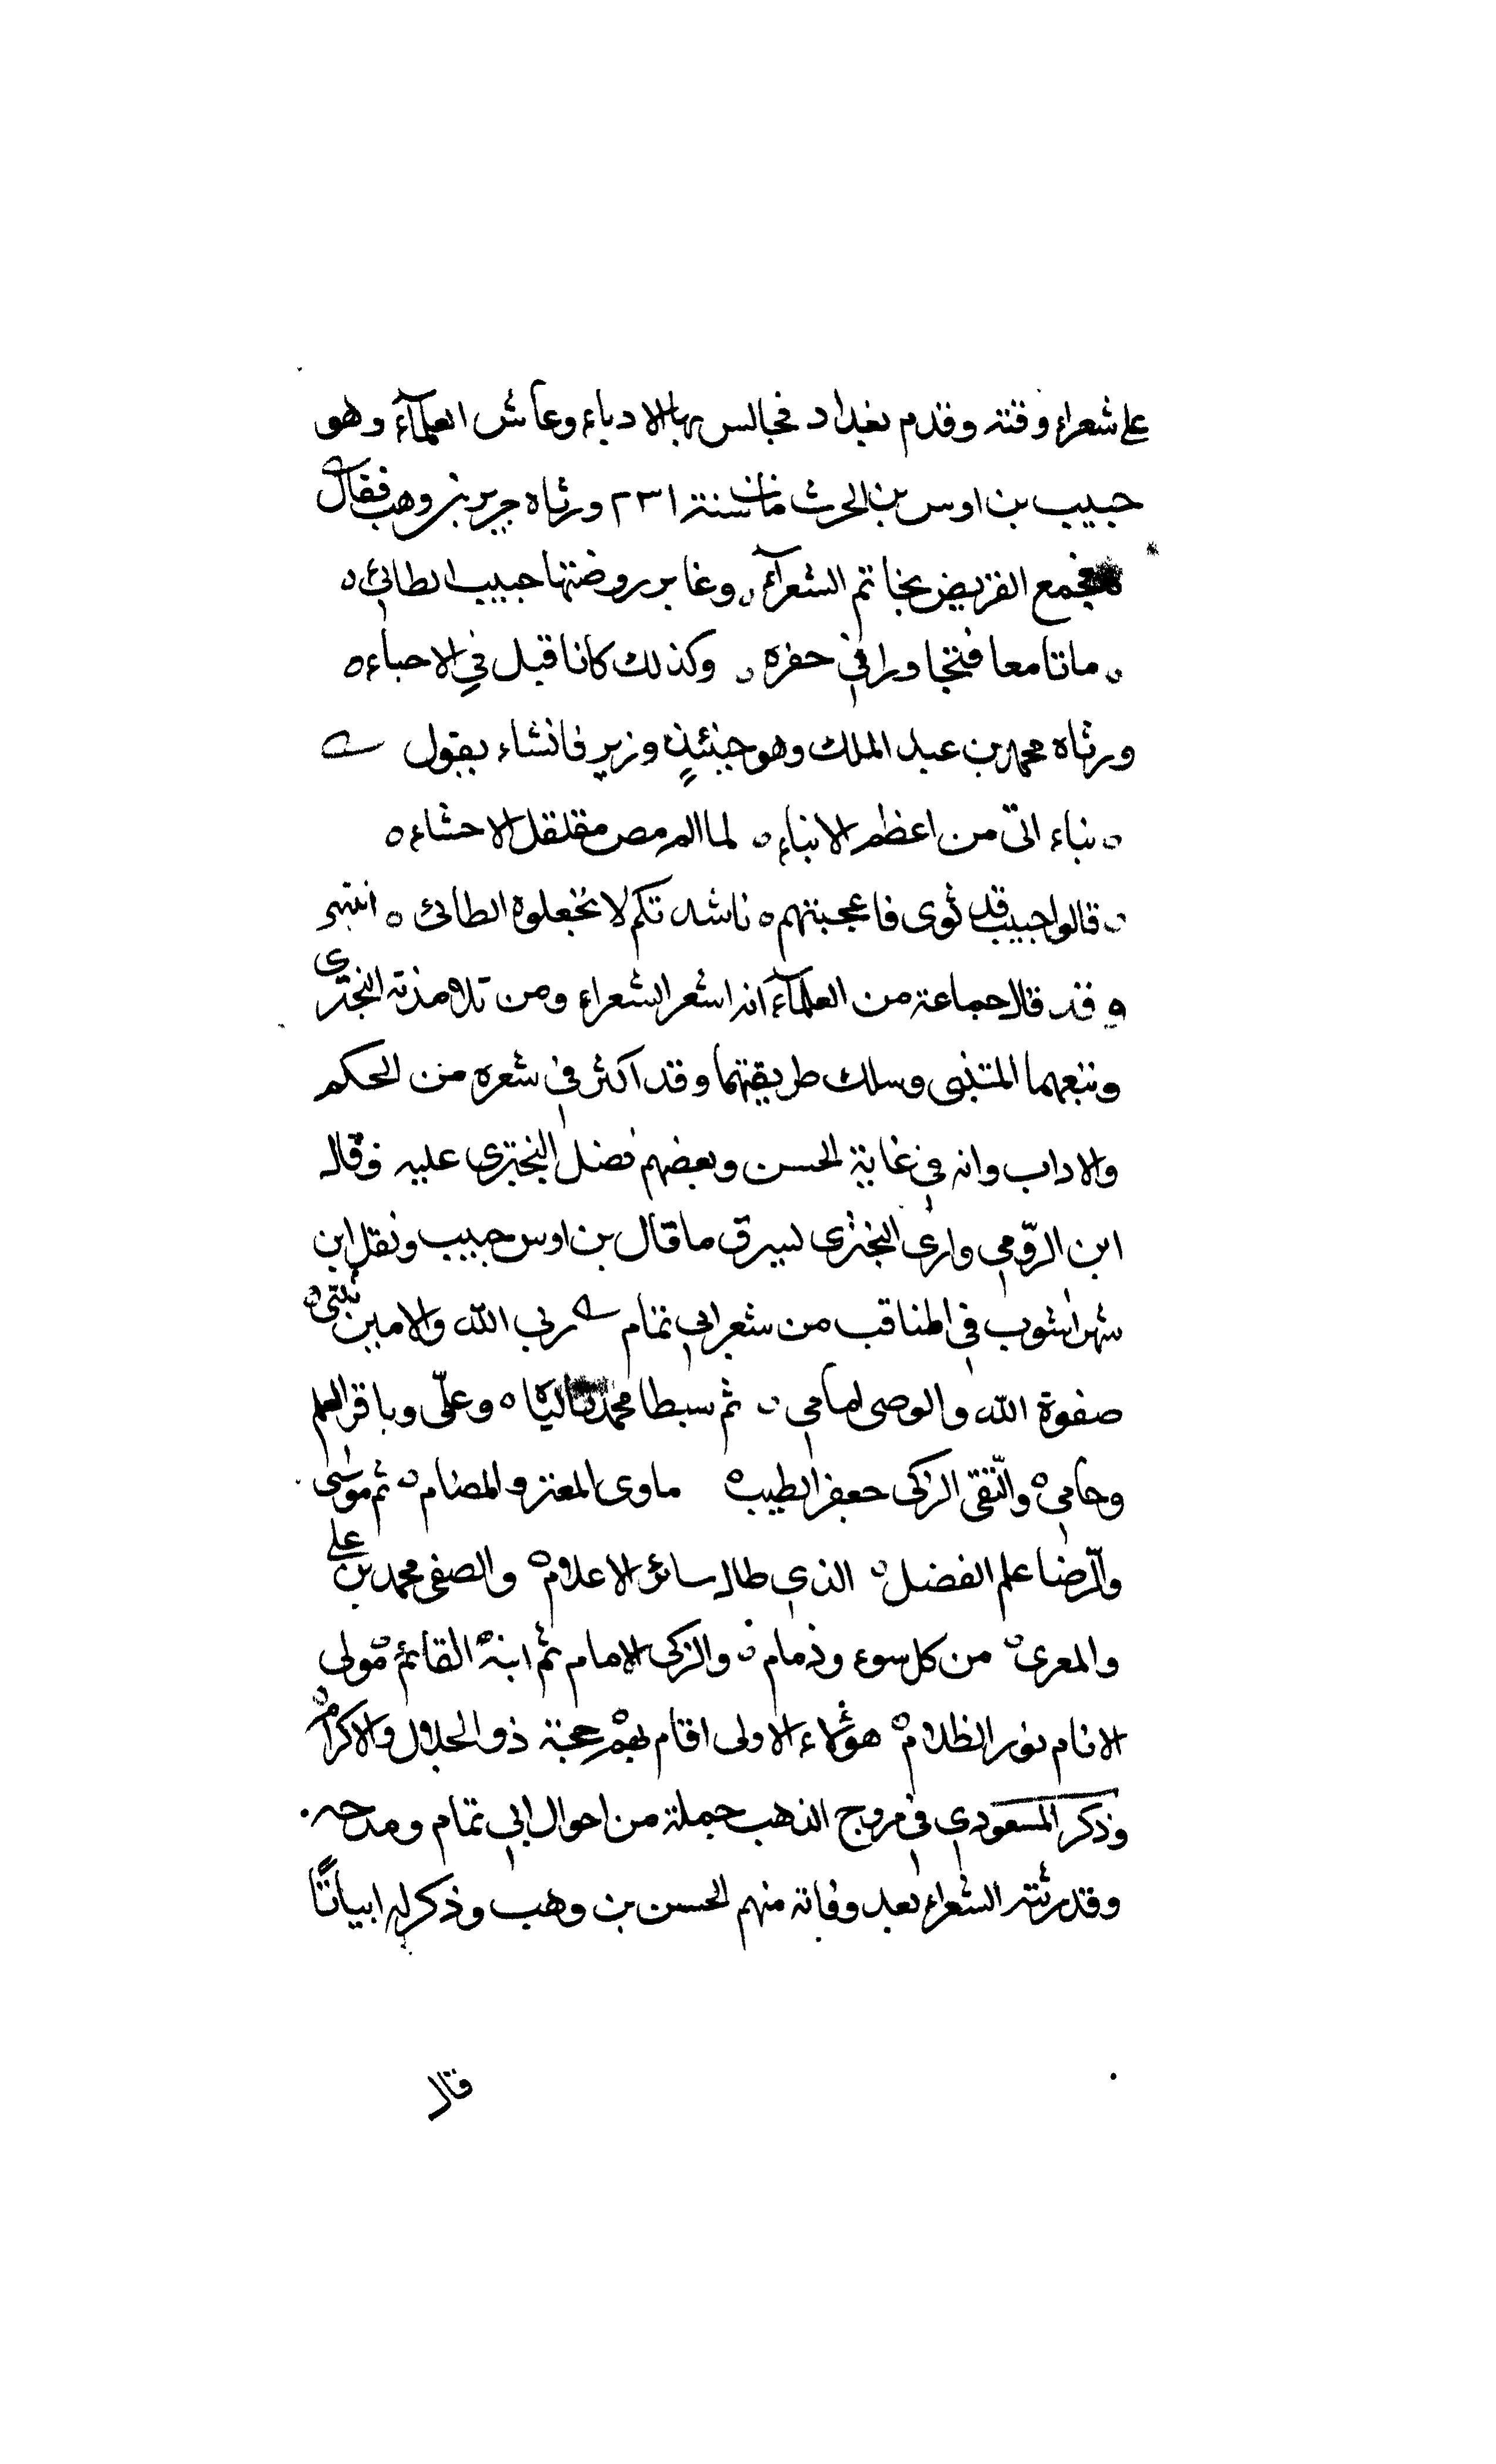 على شعراء وقته وقدم بغداد فجالس بها الادباء وعاش العلمآء وهو
حبيب بن اوس بن الحرث مات سنة ٢٣١ ورثاه جرير بن وهب فقال
فجمع القريض بخاتم الشعرآء وغابر روضتها حبيب الطائي
ماتا معا فتجاورا في حفره وكذلك كانا قبل في الاحباء
ورثاه محمد بن عبد الملك وهو حينئذٍ وزير فانشاء يقول
نباء اتى من اعظم الانباء لما الم مص مقلقل الاحشاء
قالوا حبيب قد ثوى فاعجبتهم ناشدتكم لا تجعلوه الطائي انتهى
وقد قال جماعة من العلمآء انه اشعر الشعراء ومن تلامذته البحترى
وتبعهما المتنبى وسلك طريقتهما وقد اكثر في شعره من الحكم
والاداب وانه في غاية الحسن وبعضهم فضل البحترى عليه وقال
ابن الرّومي وارى البحترى يسرق ما قال بن اوس حبيب ونقل ابن
شهراشوب في المناقب من شعر ابي تمام ربي الله والامين نبيّى
صفوة الله والوصى امامي ثم سبطا محمد تالياه وعلّى وباقر العلم
وحامي والتّقى الزكى جعفر الطيب ماوى المعتز والمضام ثم موسى
والرّضا علم الفضل الذي طال سائر الاعلام والصفى محمد بن على
والمعرى من كل سوء وذمام والزكى الامام ثم ابنه القائم مولى
الانام نور الظلام هؤلاء الاولى اقام بهم حجة ذو الجلال والاكرام
وذكر المسعودي في مروج الذهب جملة من احوال ابي تمام ومدحه
وقد رثته الشعراء بعد وفاته منهم الحسن بن وهب وذكر له ابياتًا
قال